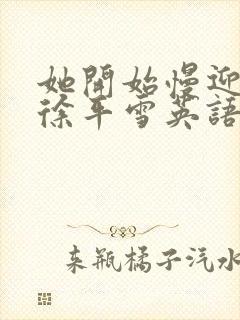 她開始慢迎
徐平雪英語
來瓶橘子汽水